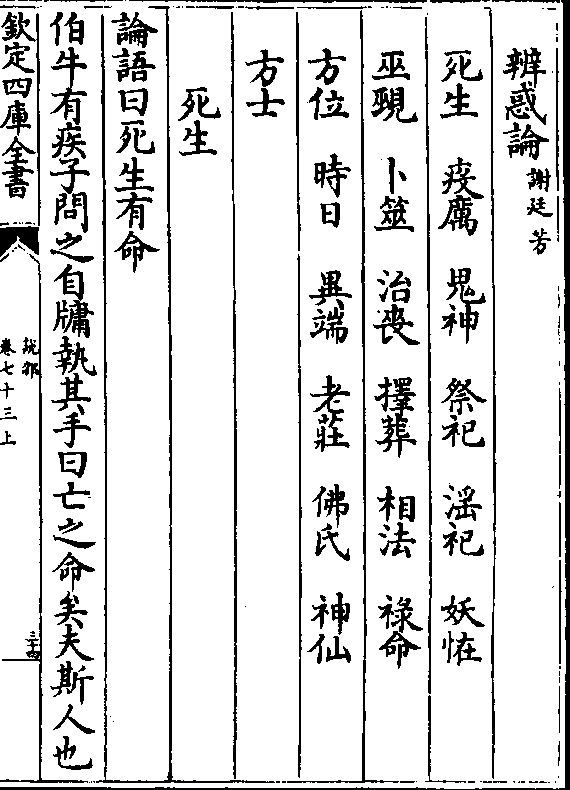 辨惑論謝廷芳
死生　疫厲　鬼神　祭祀　滛祀　妖恠
巫覡　卜筮　治喪　擇葬　相法　祿命
方位　時日　異端　老莊　佛氏　神仙
方士
死生
論語曰死生有命
伯牛有疾子問之自牖執其手曰亡之命矣夫斯人也
欽定四庫全書
說郛
卷七十三上
三十四